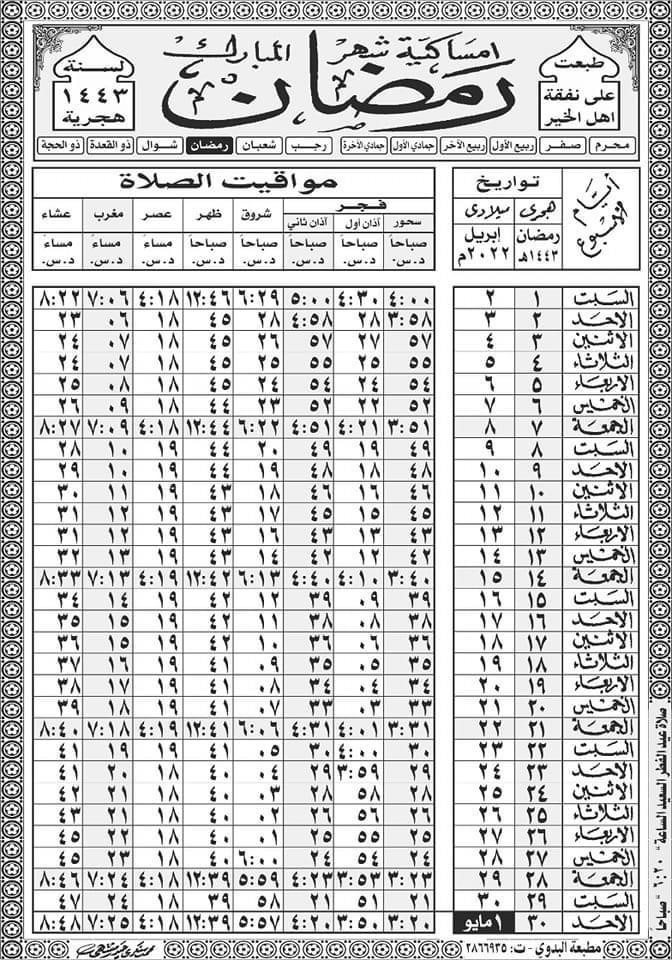 طبعت
على نفقة
اهل الخير
امساكية شهر رمضان المبارك
لسنة
١٤٤٣
هجرية
محرم صفر ربيع الأول ربيع الأخر جمادي الأول جمادي الأخرة رجب شعبان رمضان شوال ذو القعدة ذو الحجة
أيام الاسبوع
تواريخ
هجرى ميلادى
رمضان ١٤٤٣هـ ابريل ٢٠٢٢م
مواقيت الصلاة
فجر شروق ظهر عصر مغرب عشاء
سحور آذان أول آذان ثاني
صباحاً صباحاً صباحاً صباحاً صباحاً مساءً مساءً مساءً
د.س. د.س. د.س. د.س. د.س. د.س. د.س. د.س.
السبت ١ ٢ ٤:٠٠ ٤:٣٠ ٥:٠٠ ٦:٢٩ ١٢:٤٦ ٤:١٨ ٧:٠٦ ٨:٢٢
الاحد ٢ ٣ ٣:٥٨ ٢٨ ٤:٥٨ ٢٨ ٤٥ ١٨ ٠٦ ٢٣
الاثنين ٣ ٤ ٥٧ ٢٧ ٥٧ ٢٦ ٤٥ ١٨ ٠٧ ٢٤
الثلاثاء ٤ ٥ ٥٥ ٢٥ ٥٥ ٢٥ ٤٥ ١٨ ٠٧ ٢٤
الاربعاء ٥ ٦ ٥٤ ٢٤ ٥٤ ٢٤ ٤٥ ١٨ ٠٨ ٢٥
الخميس ٦ ٧ ٥٢ ٢٢ ٥٢ ٢٣ ٤٤ ١٨ ٠٩ ٢٦
الجمعة ٧ ٨ ٣:٥١ ٤:٢١ ٤:٥١ ٦:٢٢ ١٢:٤٤ ٤:١٨ ٧:٠٩ ٨:٢٧
السبت ٨ ٩ ٤٩ ١٩ ٤٩ ٢٠ ٤٤ ١٩ ١٠ ٢٨
الاحد ٩ ١٠ ٤٨ ١٨ ٤٨ ١٩ ٤٤ ١٩ ١٠ ٢٩
الاثنين ١٠ ١١ ٤٦ ١٦ ٤٦ ١٨ ٤٣ ١٩ ١١ ٣٠
الثلاثاء ١١ ١٢ ٤٥ ١٥ ٤٥ ١٧ ٤٣ ١٩ ١١ ٣١
الاربعاء ١٢ ١٣ ٤٣ ١٣ ٤٣ ١٦ ٤٣ ١٩ ١٢ ٣١
الخميس ١٣ ١٤ ٤٢ ١٢ ٤٢ ١٤ ٤٣ ١٩ ١٣ ٣٢
الجمعة ١٤ ١٥ ٣:٤٠ ٤:١٠ ٤:٤٠ ٦:١٣ ١٢:٤٢ ٤:١٩ ٧:١٣ ٨:٣٣
السبت ١٥ ١٦ ٣٩ ٠٩ ٣٩ ١٢ ٤٢ ١٩ ١٤ ٣٤
الاحد ١٦ ١٧ ٣٨ ٠٨ ٣٨ ١١ ٤٢ ١٩ ١٥ ٣٥
الاثنين ١٧ ١٨ ٣٦ ٠٦ ٣٦ ١٠ ٤٢ ١٩ ١٥ ٣٦
الثلاثاء ١٨ ١٩ ٣٥ ٠٥ ٣٥ ٠٩ ٤١ ١٩ ١٦ ٣٧
الاربعاء ١٩ ٢٠ ٣٤ ٠٤ ٣٤ ٠٨ ٤١ ١٩ ١٧ ٣٨
الخميس ٢٠ ٢١ ٣٣ ٠٣ ٣٣ ٠٧ ٤١ ١٩ ١٨ ٣٩
الجمعة ٢١ ٢٢ ٣:٣١ ٤:٠١ ٤:٣١ ٦:٠٦ ١٢:٤١ ٤:١٩ ٧:١٨ ٨:٤٠
السبت ٢٢ ٢٣ ٣٠ ٤:٠٠ ٣٠ ٠٥ ٤١ ١٩ ١٩ ٤١
الاحد ٢٣ ٢٤ ٢٩ ٣:٥٩ ٢٩ ٠٤ ٤٠ ١٨ ٢٠ ٤١
الاثنين ٢٤ ٢٥ ٢٨ ٥٨ ٢٨ ٠٣ ٤٠ ١٨ ٢١ ٤٢
الثلاثاء ٢٥ ٢٦ ٢٦ ٥٦ ٢٦ ٠٢ ٤٠ ١٨ ٢١ ٤٣
الاربعاء ٢٦ ٢٧ ٢٥ ٥٥ ٢٥ ٠١ ٤٠ ١٨ ٢٢ ٤٥
الخميس ٢٧ ٢٨ ٢٤ ٥٤ ٢٤ ٦:٠٠ ٤٠ ١٨ ٢٣ ٤٥
الجمعة ٢٨ ٢٩ ٣:٢٣ ٣:٥٣ ٤:٢٣ ٥:٥٩ ١٢:٣٩ ٤:١٨ ٧:٢٤ ٨:٤٦
السبت ٢٩ ٣٠ ٢١ ٥١ ٢١ ٥٨ ٣٩ ١٨ ٢٤ ٤٧
الاحد ٣٠ ١ مايو ٣:٢٠ ٣:٥٠ ٤:٢٠ ٥:٥٧ ١٢:٣٩ ٤:١٨ ٧:٢٥ ٨:٤٨
صلاة عيد الفطر السعيد الساعة " ٦:٢٠ " صباحاً
مطبعة البدوي - ت: ٢٨٦٦٩٣٥